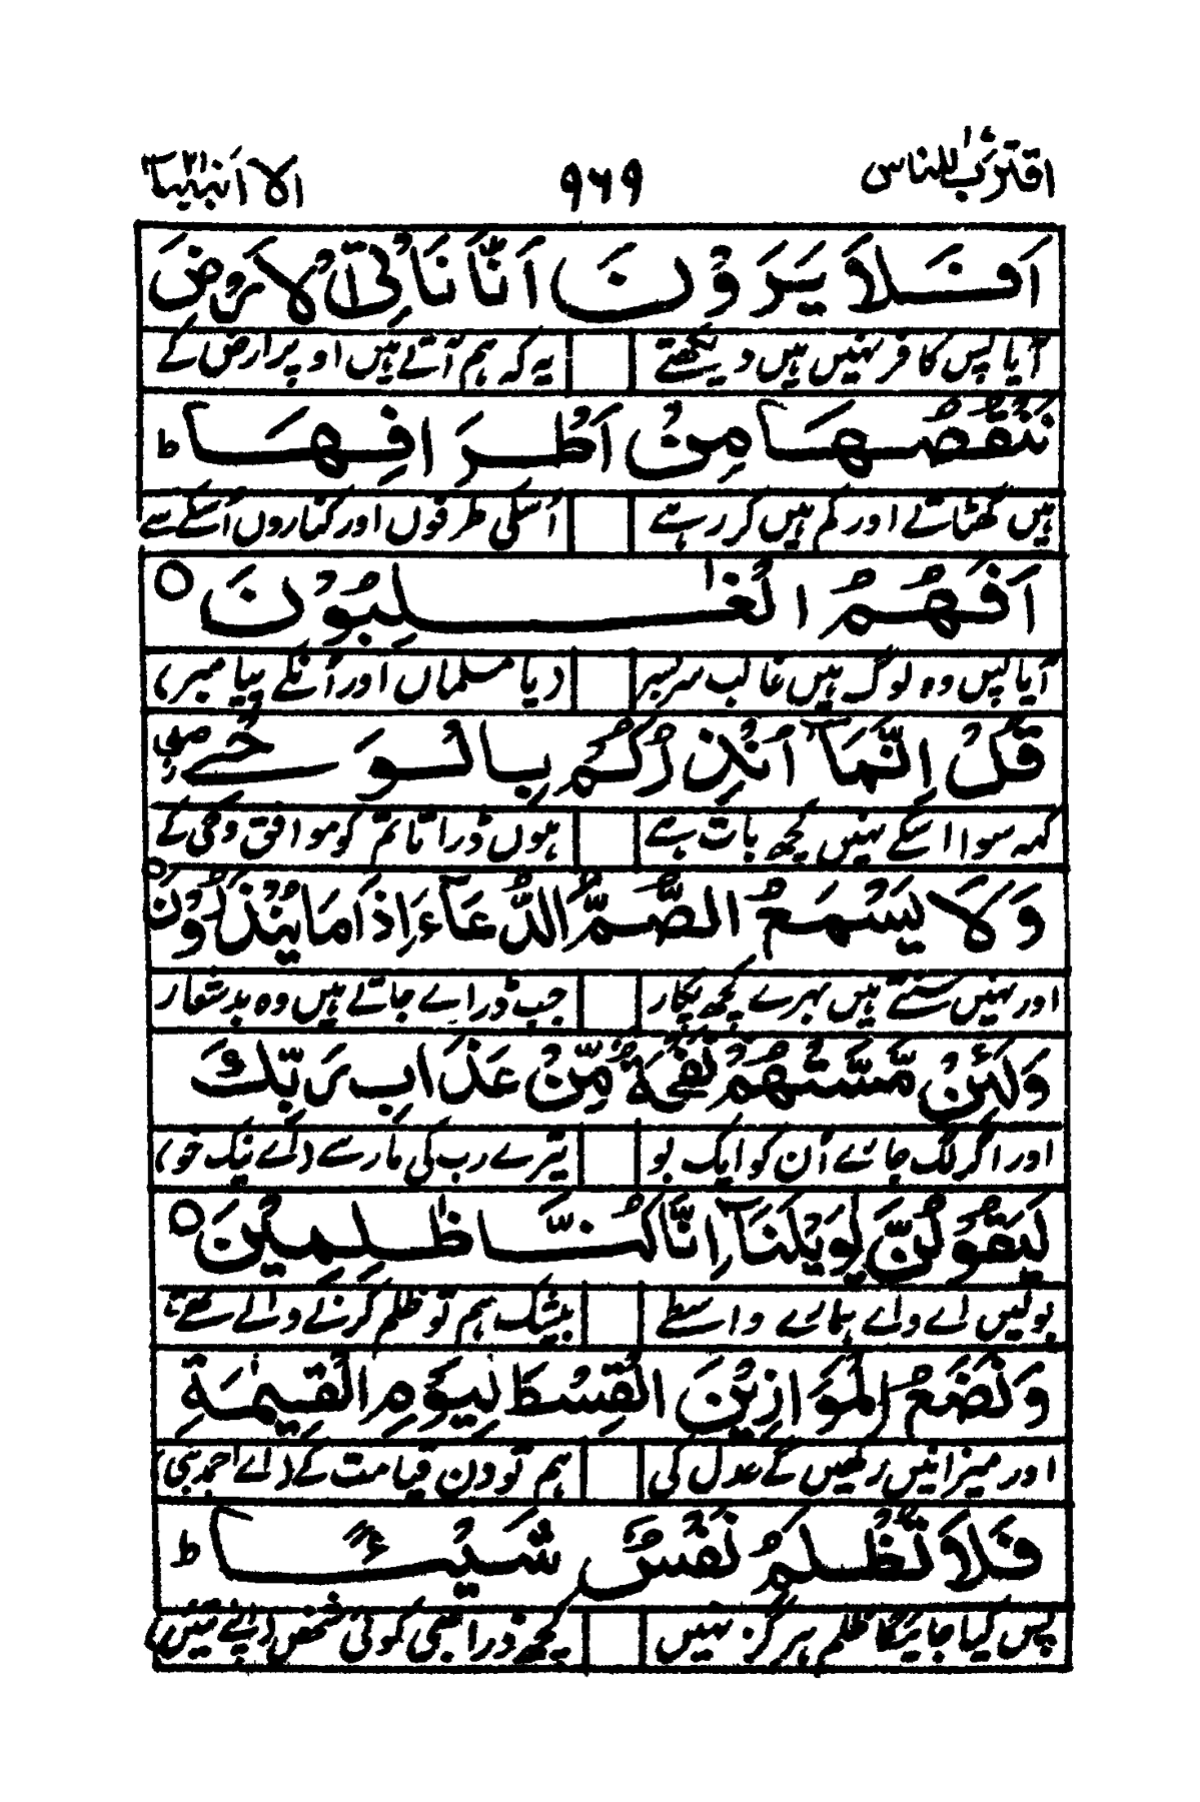 اقترب للناس ١٧ ٩٦٩ الانبیآء ٢١
اَفَلَا يَرَوْنَ اَنَّا نَاْتِی الْاَرْضَ
آیا پس کافر نہیں ہیں دیکھتے یہ کہ ہم آتے ہیں اوپر ارض کے
نَنْقُصُهَا مِنْ اَطْرَافِهَا ط
ہیں گھٹاتے اور کم ہیں کر رہے اُسکی طرفوں اور کناروں اُسکے سے
اَفَهُمُ الْغٰلِبُوْنَ ○
آیا پس وہ لوگ ہیں غالب سربسر (یا مسلماں اور اُنکے پیامبر)
قُلْ اِنَّمَآ اُنْذِرُكُمْ بِالْوَحْیِ صلے
کہہ سوا اسکے نہیں کچھ بات ہے ہوں ڈراتا تم کو موافق وحی کے
وَلَا يَسْمَعُ الصُّمُّ الدُّعَآءَ اِذَا مَا يُنْذَرُوْنَ ○
اور نہیں سنتے ہیں بہرے کچھ پکار جب ڈرائے جاتے ہیں وہ بدشعار
وَلَئِنْ مَّسَّتْهُمْ نَفْحَةٌ مِّنْ عَذَابِ رَبِّكَ
اور اگر لگ جائے اُن کو ایک بو تیرے رب کی مار سے (اے نیک خو)
لَيَقُوْلُنَّ يٰوَيْلَنَآ اِنَّا كُنَّا ظٰلِمِيْنَ ○
بولیں اے وائے ہمارے واسطے بیشک ہم تو ظلم کرنے والے تھے
وَنَضَعُ الْمَوَازِيْنَ الْقِسْطَ لِيَوْمِ الْقِيٰمَةِ
اور میزانیں رکھیں گے عدل کی ہم تو دن قیامت کے (اے احمد نبی)
فَلَا تُظْلَمُ نَفْسٌ شَيْئًا ط
پس کیا جائیگا ظلم ہرگز نہیں کچھ ذرا بھی کوئی شخص (اپنے تئیں)